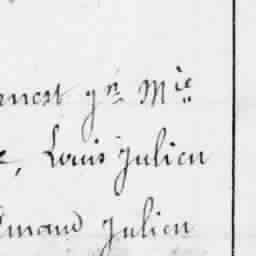 rnest gn Mie
e, Louis Julien
Emand Julien